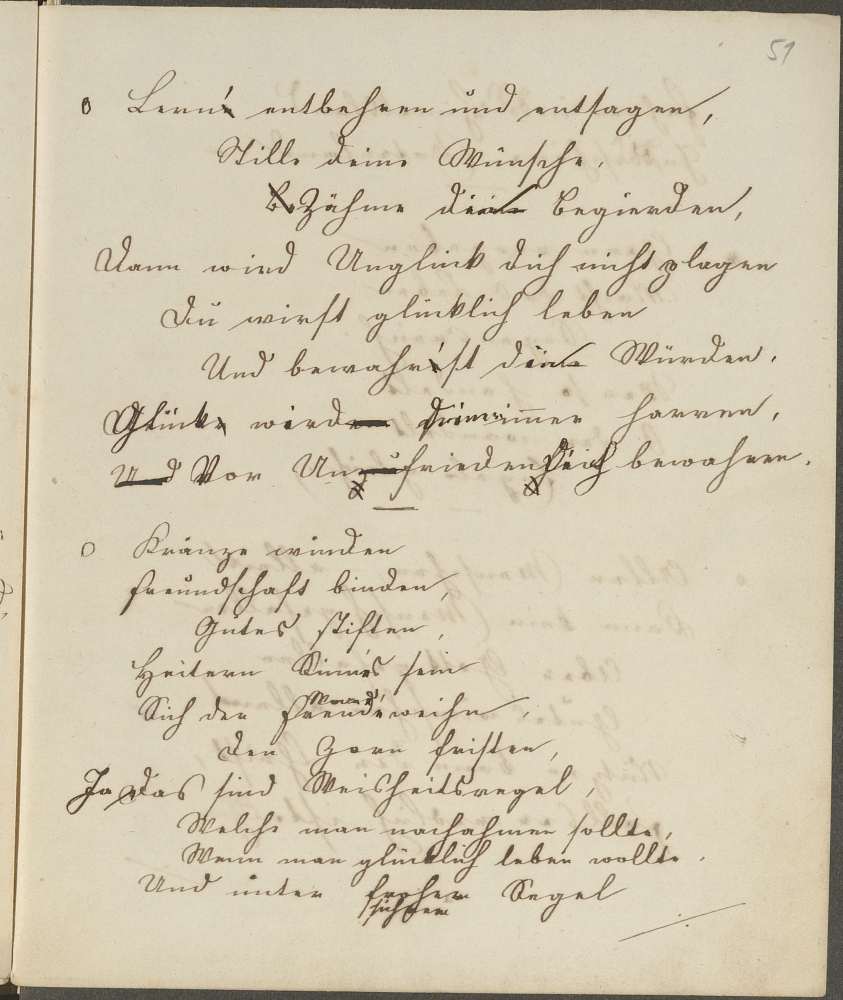 51
Lern' entbehren und entsagen,
Stille deine Wünsche,
Zähme dein Begierden,
Dann wird Unglück dich nicht plagen
Du wirst glücklich leben
Und bewahr'st dein Würden.
Glück wird immer harren,
Vor Unfrieden Dich bewahren.
Kränze winden
Freundschaft binden,
Gutes stiften,
Heitern Sinnes sein
Sich der Freud weihn,
Den Zorn fristen,
Ja Das sind Weisheitsregel,
Welche man nachahmen sollte,
Wenn man glücklich leben wollte.
Und unter frohem Segel